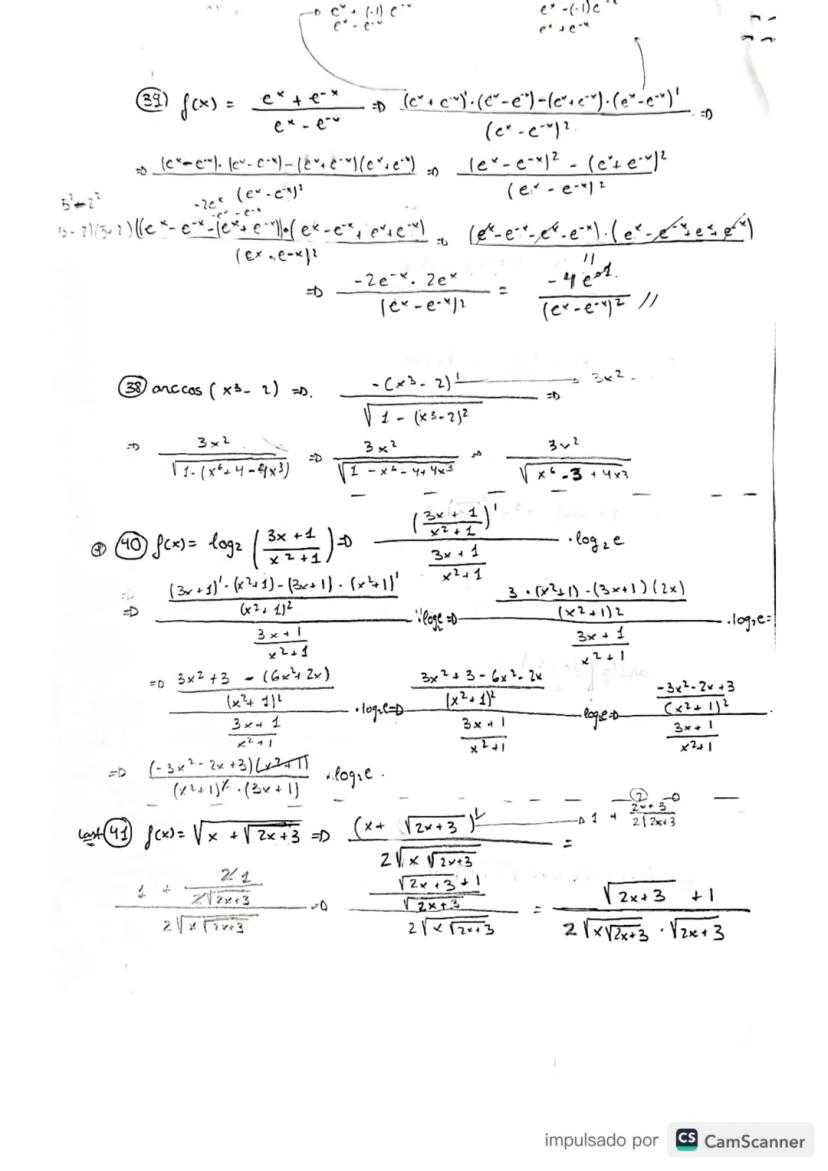 eˣ + (-1) e⁻ˣ eˣ - (-1) e⁻ˣ
eˣ - e⁻ˣ eˣ + e⁻ˣ
39) f(x) = (eˣ + e⁻ˣ)/(eˣ - e⁻ˣ) ⇒ ((eˣ + e⁻ˣ)'·(eˣ - e⁻ˣ) - (eˣ + e⁻ˣ)·(eˣ - e⁻ˣ)')/(eˣ - e⁻ˣ)² ⇒
⇒ ((eˣ - e⁻ˣ)·(eˣ - e⁻ˣ) - (eˣ + e⁻ˣ)(eˣ + e⁻ˣ))/(eˣ - e⁻ˣ)² ⇒ ((eˣ - e⁻ˣ)² - (eˣ + e⁻ˣ)²)/(eˣ - e⁻ˣ)²
5² - 2²
((eˣ - e⁻ˣ - (eˣ + e⁻ˣ))·(eˣ - e⁻ˣ + eˣ + e⁻ˣ))/(eˣ - e⁻ˣ)² ⇒ (eˣ - e⁻ˣ - eˣ - e⁻ˣ)·(eˣ - e⁻ˣ + eˣ + e⁻ˣ)
⇒ (-2e⁻ˣ · 2eˣ)/(eˣ - e⁻ˣ)² = (-4 e⁰ 1)/(eˣ - e⁻ˣ)² //
38) arc cos (x³ - 2) ⇒ (-(x³ - 2)')/√(1 - (x³ - 2)²) → 3x² ⇒
⇒ 3x²/√(1 - (x⁶ + 4 - 4x³)) ⇒ 3x²/√(1 - x⁶ - 4 + 4x³) ⇒ 3x²/√(x⁶ - 3 + 4x³)
40) f(x) = log₂ ((3x + 1)/(x² + 1)) ⇒ ((3x + 1)/(x² + 1))'/((3x + 1)/(x² + 1)) · log₂e
⇒ (((3x + 1)'·(x² + 1) - (3x + 1)·(x² + 1)')/(x² + 1)²)/((3x + 1)/(x² + 1)) · log₂e ⇒ ((3·(x² + 1) - (3x + 1)(2x))/(x² + 1)²)/((3x + 1)/(x² + 1)) · log₂e =
⇒ ((3x² + 3 - (6x² + 2x))/(x² + 1)²)/((3x + 1)/(x² + 1)) · log₂e ⇒ ((3x² + 3 - 6x² - 2x)/(x² + 1)²)/((3x + 1)/(x² + 1)) · log₂e ⇒ ((-3x² - 2x + 3)/(x² + 1)²)/((3x + 1)/(x² + 1))
⇒ ((-3x² - 2x + 3)(x² + 1))/((x² + 1)²·(3x + 1)) · log₂e.
last 41) f(x) = √(x + √(2x + 3)) ⇒ (x + √(2x + 3))'/(2√(x √(2x + 3))) → 1 + (2x + 3)/(2√(2x + 3)) =
(1 + 2 1/(2√(2x + 3)))/(2√(x √(2x + 3))) ⇒ ((√(2x + 3) + 1)/√(2x + 3))/(2√(x √(2x + 3))) = (√(2x + 3) + 1)/(2√(x√(2x + 3)) · √(2x + 3))
impulsado por CS CamScanner